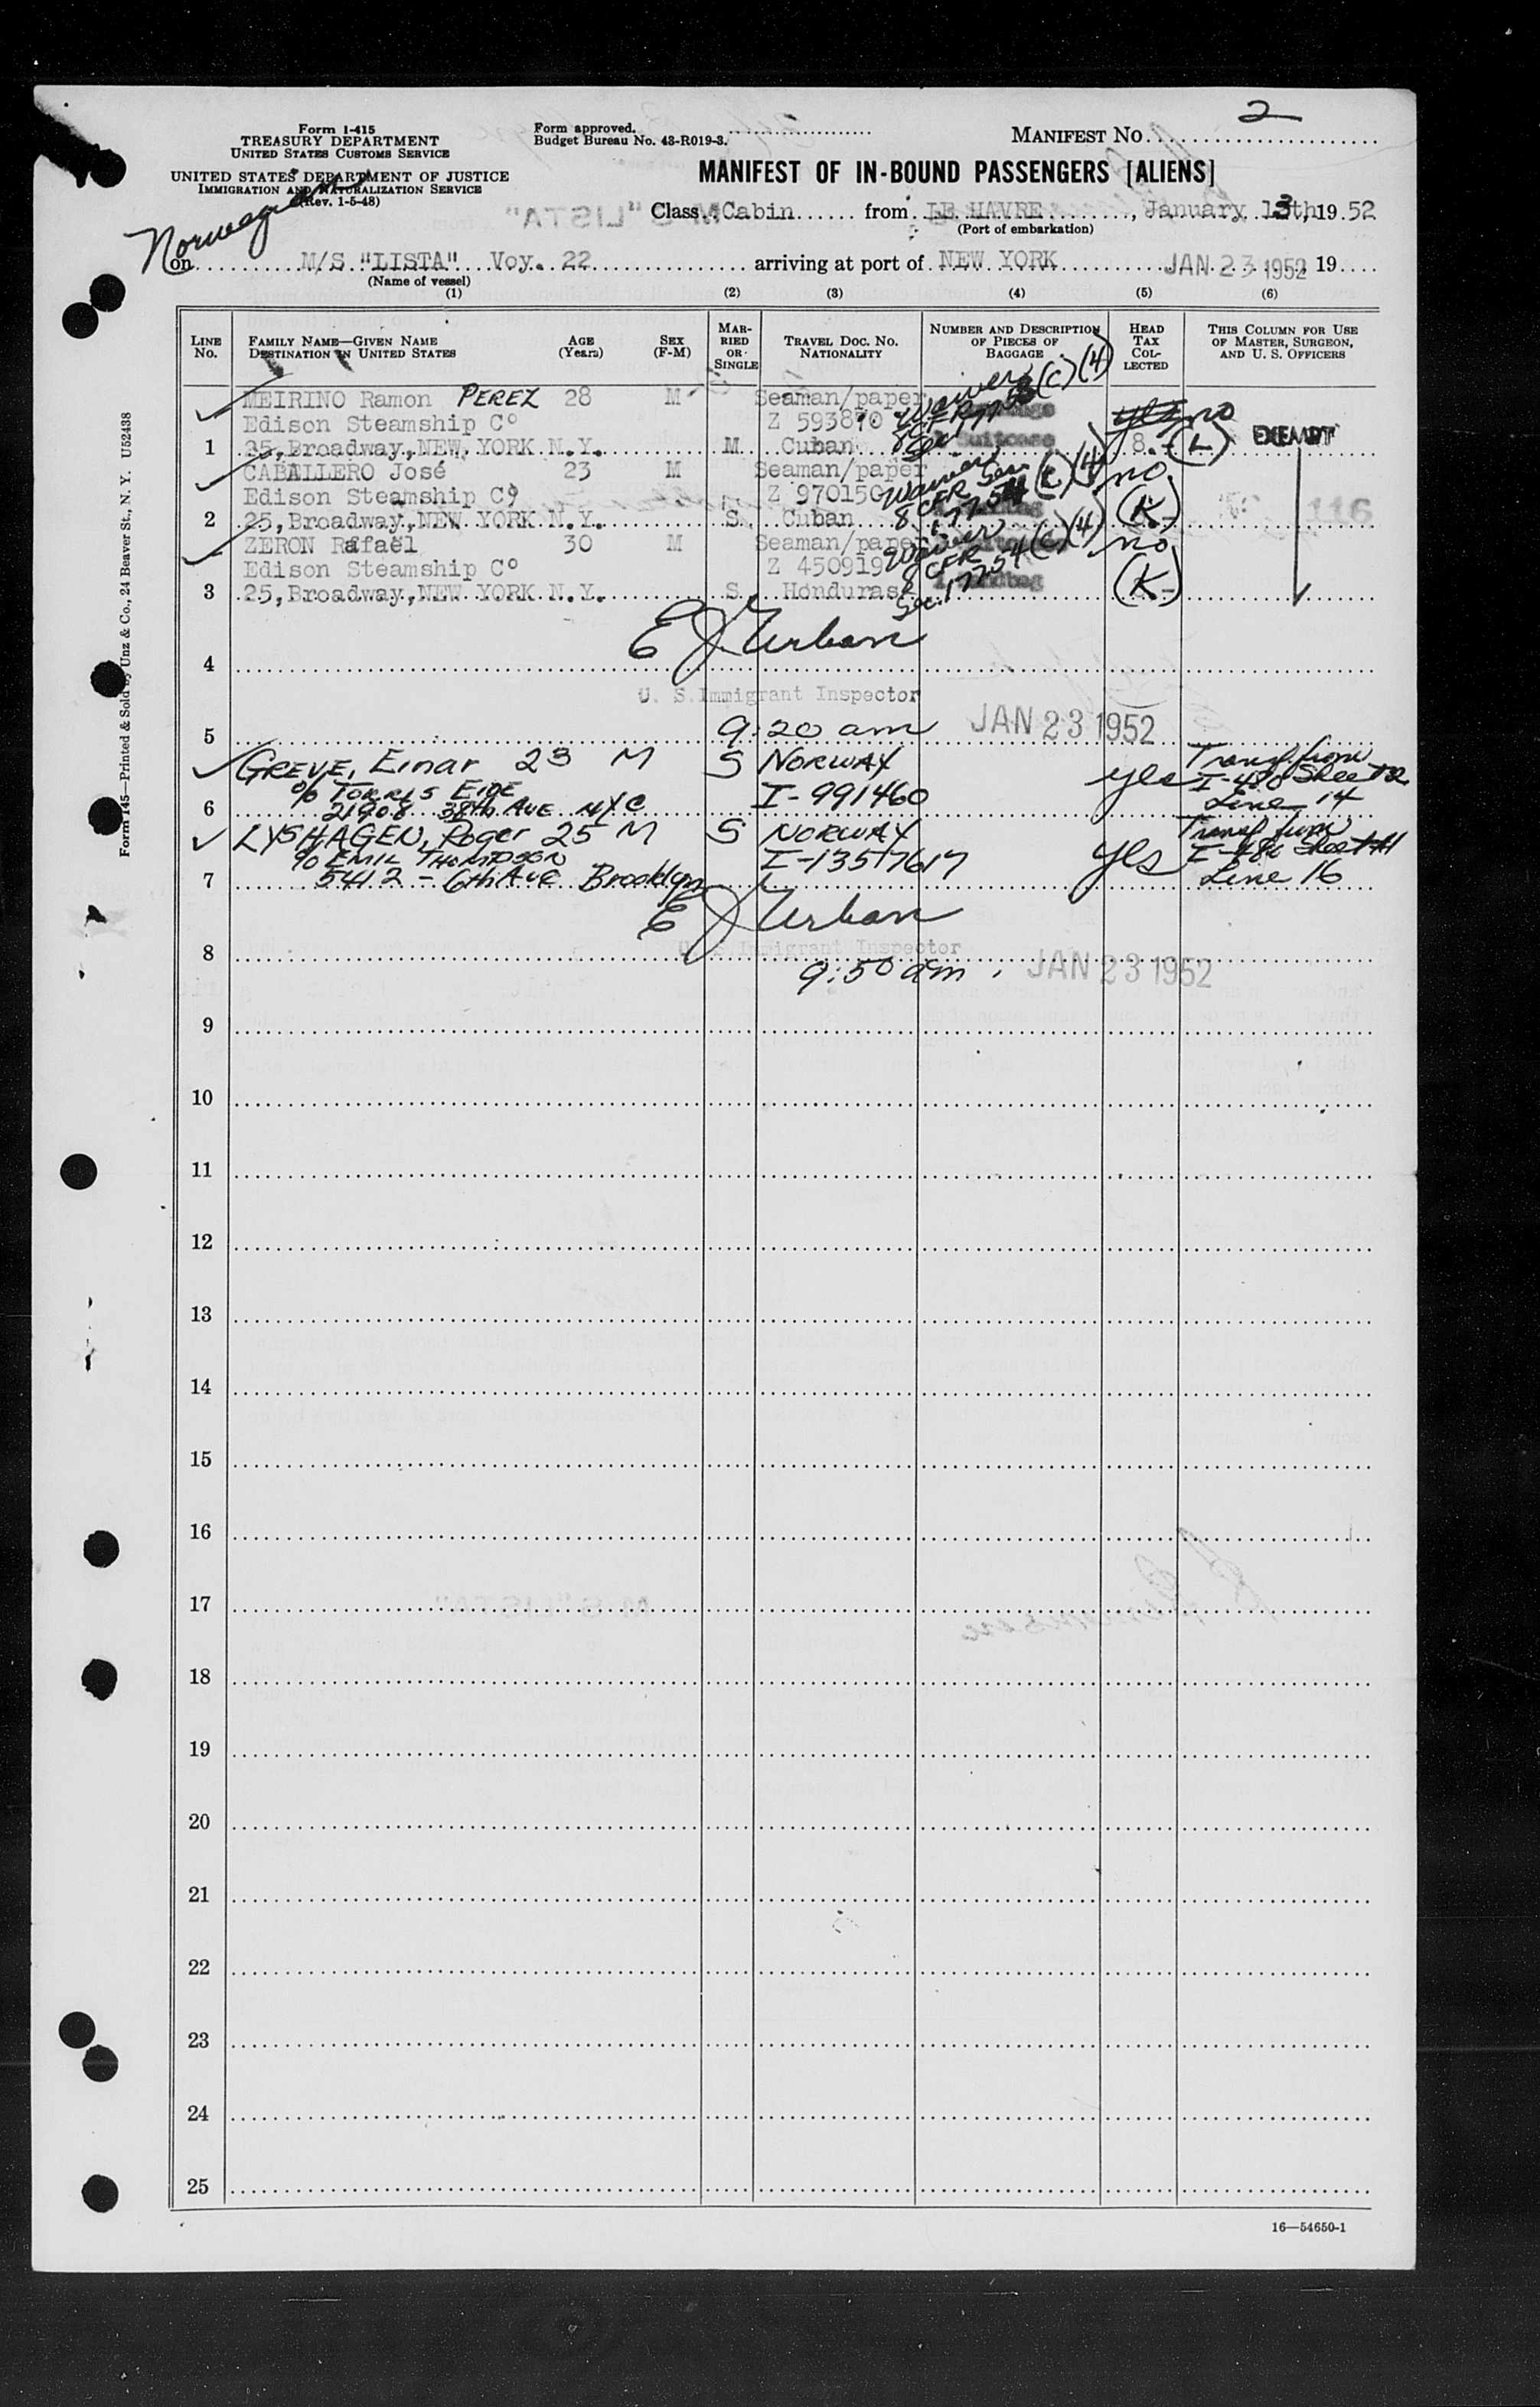 Form I-415
TREASURY DEPARTMENT
UNITED STATES CUSTOMS SERVICE
UNITED STATES DEPARTMENT OF JUSTICE
IMMIGRATION AND NATURALIZATION SERVICE
(Rev. 1-5-48)
Form approved.
Budget Bureau No. 43-R019-3.
MANIFEST NO. 2
MANIFEST OF IN-BOUND PASSENGERS [ALIENS]
Class Cabin from LE HAVRE, January 13th, 19 52
(Port of embarkation)
Norwegian
on M/S "LISTA" Voy. 22 arriving at port of NEW YORK JAN 23 1952, 19
(Name of vessel)
(1) (2) (3) (4) (5) (6)
LINE No. FAMILY NAME—GIVEN NAME DESTINATION IN UNITED STATES AGE (Years) SEX (F-M) MARRIED OR SINGLE TRAVEL DOC. NO. NATIONALITY NUMBER AND DESCRIPTION OF PIECES OF BAGGAGE HEAD TAX COLLECTED THIS COLUMN FOR USE OF MASTER, SURGEON, AND U. S. OFFICERS
MEIRINO Ramon PEREZ 28 M Seaman/paper Waiver
Edison Steamship Cº Z 593870 8 CFR (c)(4) yes no
1 25, Broadway, NEW YORK N.Y. M Cuban Sec. Suitcase 8.- (L) EXEMPT
CABALLERO José 23 M Seaman/paper Waiver no
Edison Steamship Cº Z 970150 8 CFR Sec. (c)(4)
2 25, Broadway, NEW YORK N.Y. S Cuban 177.54 (K) 116
ZERON Rafaël 30 M Seaman/paper Waiver no
Edison Steamship Cº Z 450919 8 CFR (c)(4)
3 25, Broadway, NEW YORK N.Y. S Honduras Sec. 177.54 handbag (K)
E J Urban
4
U. S. Immigrant Inspector
5 9:20 am JAN 23 1952
GREVE, Einar 23 M S NORWAY yes Transf from
% TORRIS EIDE I-991460 I-480 Sheet #2
6 21908 38th AVE NYC Line 14
LYSHAGEN, Roger 25 M S NORWAY Transf from
% EMIL THOMPSON I-1357617 yes I-480 Sheet #1
7 5412 - 6th Ave Brooklyn Line 16
E J Urban
8 U. S. Immigrant Inspector
9:50 am JAN 23 1952
9
10
11
12
13
14
15
16
17
18
19
20
21
22
23
24
25
16—54650-1
Form 145—Printed & Sold by Unz & Co., 24 Beaver St., N. Y. U52438